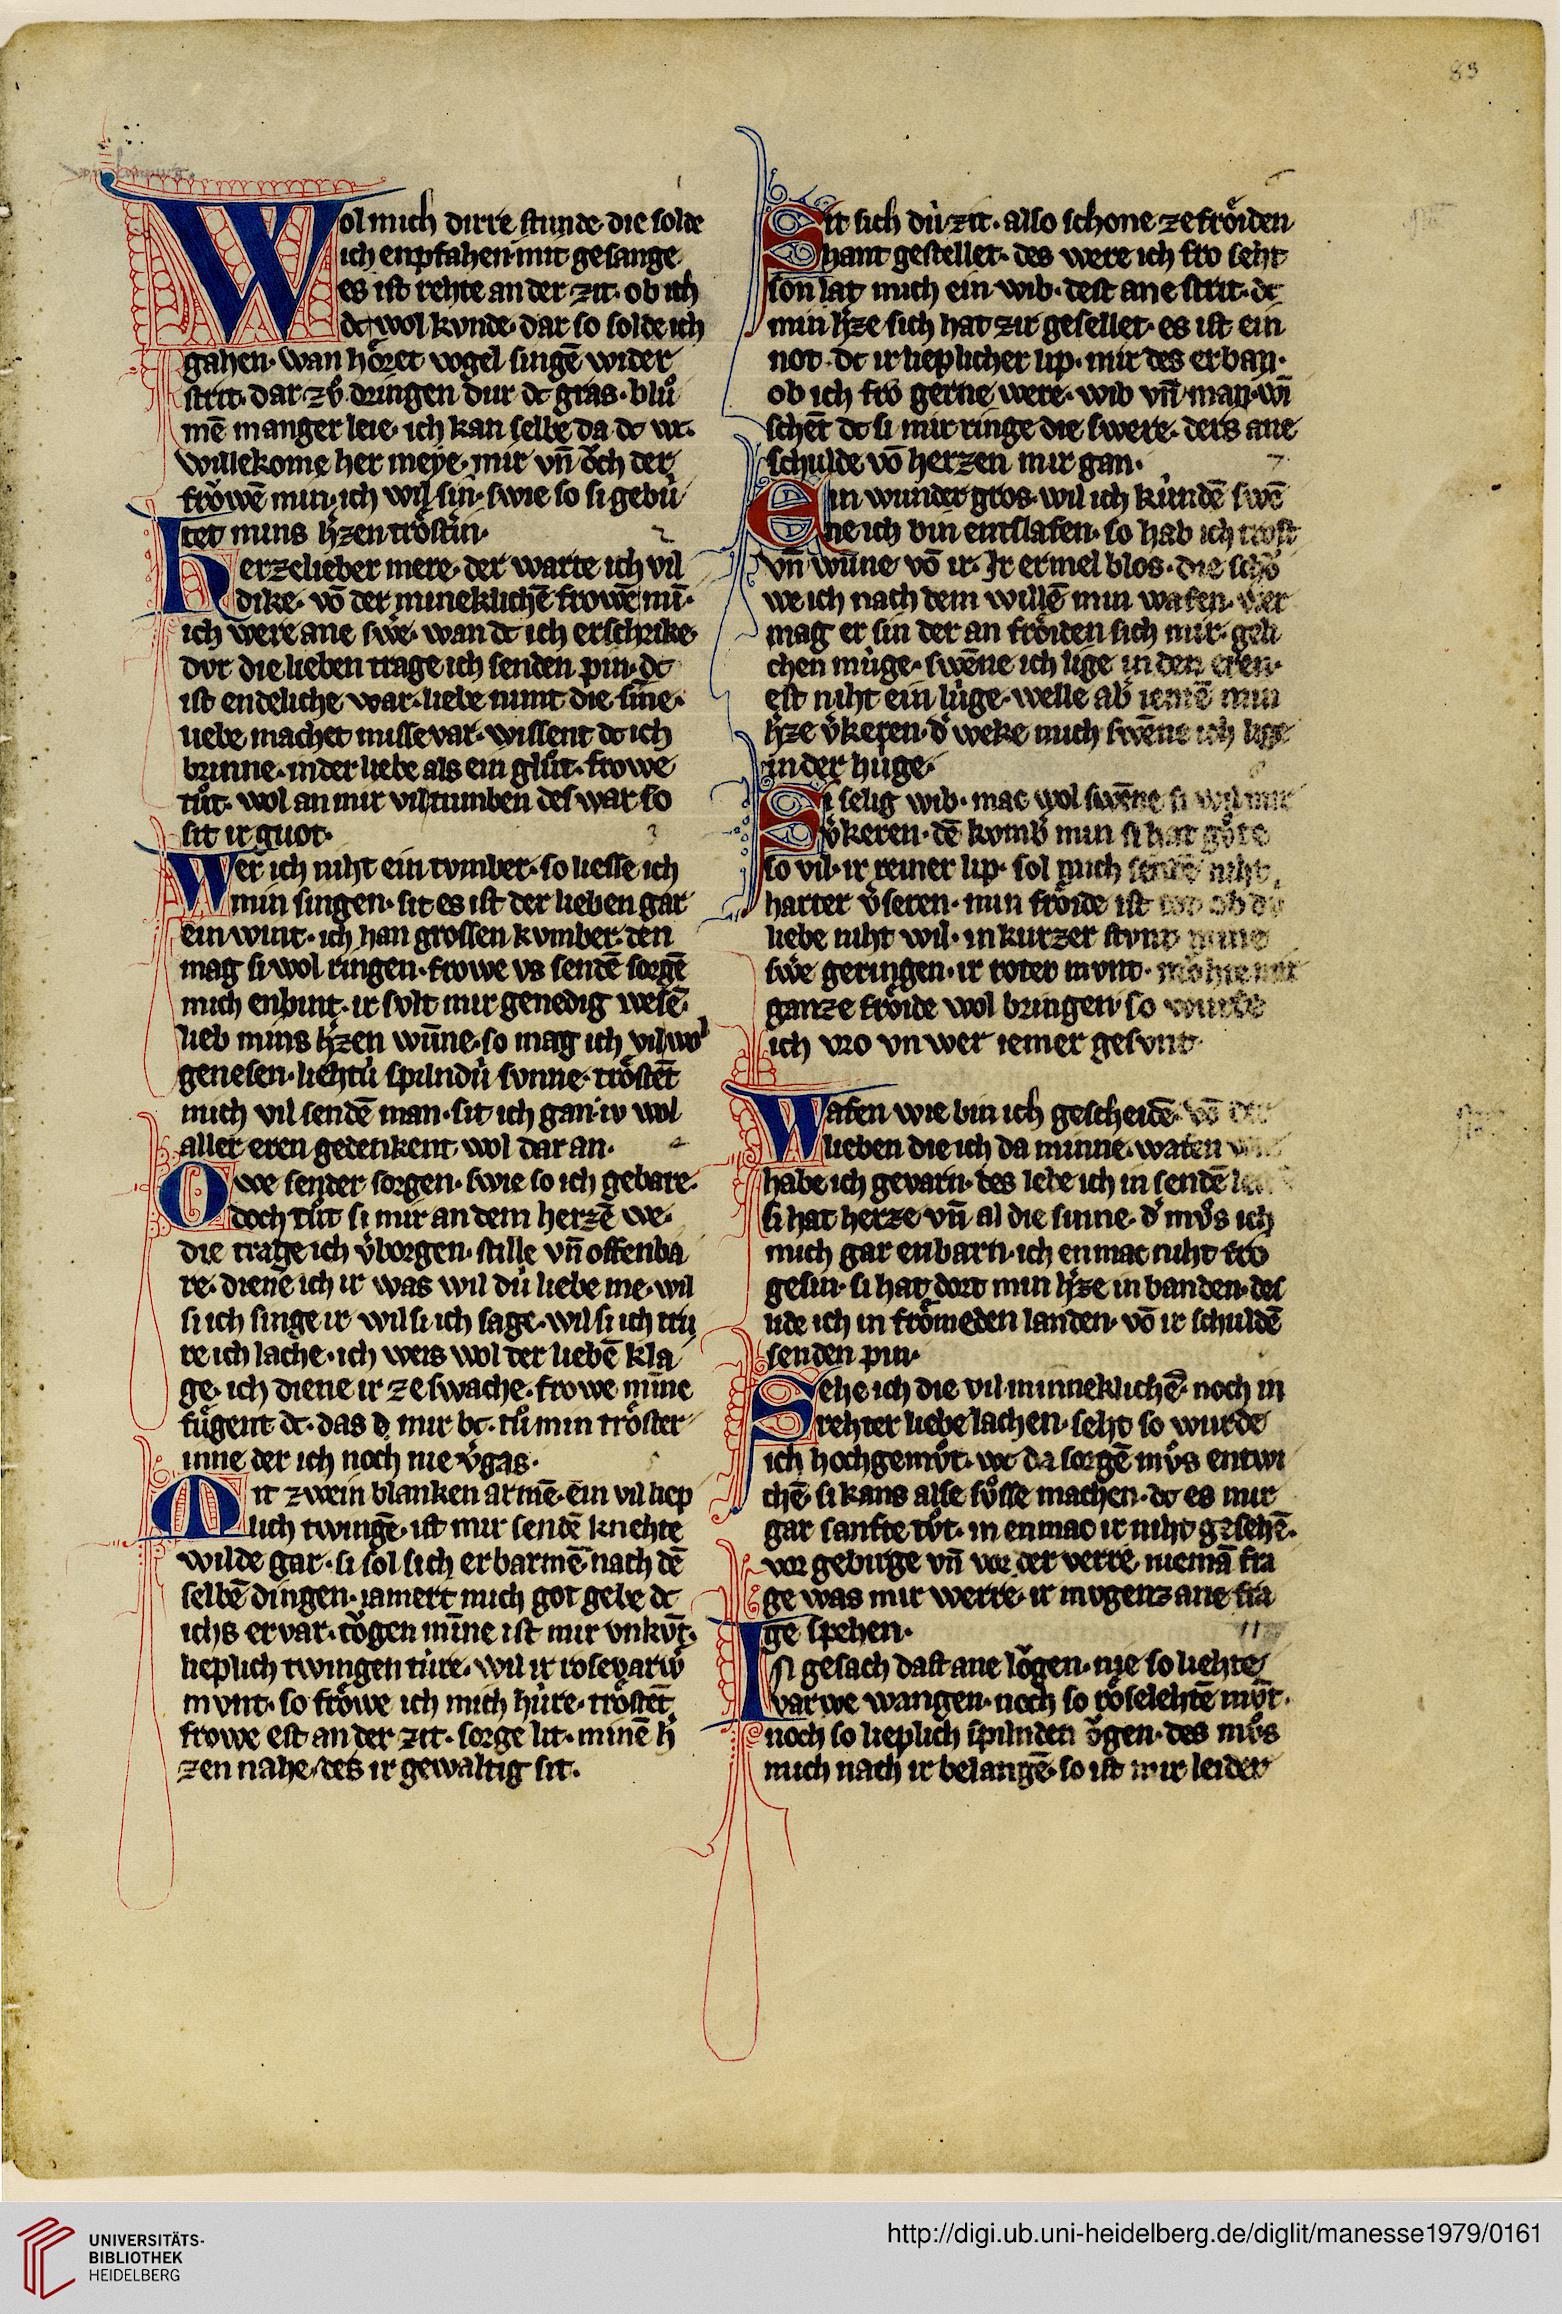 83
Wol mich dirre stunde die solde
ich enpfahen mit gesange
es ist rehte an der zit· ob ich
dc wol kvnde· dar so solde ich
gahen· wan hôret vogel singē wider
strit· dar zů dringen dur dc gras· blů
mē manger leie· ich kan selbe da dc
willekome her meye· mir vn̄ ǒch der
frǒwē min· ich wil sin· swie so si gebů
tet mins h'zen trôstin·
Herzelieber mere· der warte ich vil
dike· vō der mineklichē frowē mī·
ich were ane swe· wan dc ich erschrike
dvr die lieben trage ich senden pin· dc
ist endeliche war· liebe nimt die sīne·
liebe machet misse var· wissent dc ich
brinne· in der liebe als ein glůt· frowe
tůt· wol an mir vil tumben des war so
sit ir guot·
Wer ich niht ein tvmber· so liesse ich
min singen· sit es ist der lieben gar
ein wint· ich han grossen kvmber· den
mag si wol ringen· frowe vs sendē sorgē
mich enbint· ir svlt mir genedig wesē
lieb mins h'zen wūne· so mag ich vil wol
genesen· liehtů spilndů svnne· trôstēt
mich vil sendē man· sit ich gan iv wol
aller eren gedenkent wol dar an·
Owe sender sorgen· swie so ich gebare·
doch tůt si mir an dem herzē we·
die trage ich v'borgen· stille vn̄ offenba
re· dienē ich ir was wil dů liebe me· wil
si ich singe ir wil si ich sage· wil si ich trů
re ich lache· ich weis wol der liebē kla
ge· ich diene ir ze swache· frowe mīne
fůgent dc· das mir bc· tů min trôster
inne der ich noch nie v'gas·
Mit zwein blanken armē· ein vil liep
lich twingē· ist mir sendē knehte
wilde gar· si sol sich erbarmē nach dē
selbē dingen· iamert mich got gebe dc
ichs ervar· tǒgen mīne ist mir vnkvt·
lieplich twingen tůre· wil ir rosevarw
mvnt· so frǒwe ich mich hůre· trôstēt
frowe est an der zit· sorge lit· minē h'
zen nahe des ir gewaltig sit·
Sit sich dů zit· also schone ze frôiden
hant gestellet· des were ich fro seht
son lat mich ein wib· dest ane strit· dc
min h'ze sich hat zir gesellet· es ist ein
not· dc ir lieplicher lip· mir des erban·
ob ich fro gerne were· wib vn̄ man wī
schēt dc si mir ringe die swere· ders ane
schulde vō herzen mir gan·
Ein wunder gros· wil ich kůndē swē
ne ich bin entslafen· so hab ich trost
vn̄ wūne vō ir· Ir ermel blos· die schǒ
we ich nach dem willē min wafen· wer
mag er sin der an frôiden sich mir· geli
chen můge· swēne ich lige in den eren·
est niht ein lůge· welle ab' iemē min
h'ze v'keren· d' weke mich swēne ich lige
in der hůge·
Si selig wib· mac wol swēne si wil mir
v'keren· dē komb' min si hat gůte
so vil· ir reiner lip· sol mich sendē niht
harter v'seren· min frôide ist tot ob dů
liebe niht wil· in kurzer stvnt mine
swe geringen· ir roter mvnt· môhte mir
ganze frôide wol bringen· so wurde
ich vro vn wer iemer gesvnt·
Wafen wie bin ich gescheidē· vō der
lieben die ich da minne· wafen
habe ich gevarn· des lebe ich in sendē
si hat herze vn̄ al die sinne· d' můs ich
mich gar enbarn· ich en mac niht fro
gesin· si hat dort min h'ze in banden· des
lide ich in frômeden landen· vō ir schuldē
senden pin·
Sehe ich die vil minneklichē· noch in
rehter liebe lachen· seht so wurde
ich hochgemůt· wc da sorgē můs entwi
chē· si kans alse sůsse machen· dc es mir
gar sanfte tůt· in en mac ir niht gesehē·
vor gebirge vn̄ vor der verre· niemā fra
ge was mir werre· ir mvgenz ane fra
ge spehen·
In gesach dast ane lǒgen· nie so liehte
varwe wangen· noch so rôselehtē můt·
noch so lieplich spilnden ǒgen· des můs
mich nach ir belangē· so ist mir leider
UNIVERSITÄTS-
BIBLIOTHEK
HEIDELBERG
http://digi.ub.uni-heidelberg.de/diglit/manesse1979/0161